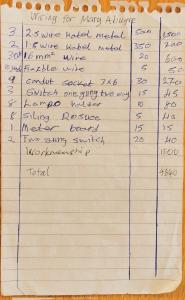 Wiring for Mary Abuyre
3 2.5 wire Kabel metal 500 1500
2 1.5 wire Kabel metal 350 700
30 16mm² wire 20 600
wire 5 50
9 Condut socket 7x6 30 270
3 Switch one gang two way 15 45
8 Lamp holder 10 80
8 Siling Rosuce 5 40
1 Meter board 15 15
2 Two gang switch 20 40
Workmanship
Total